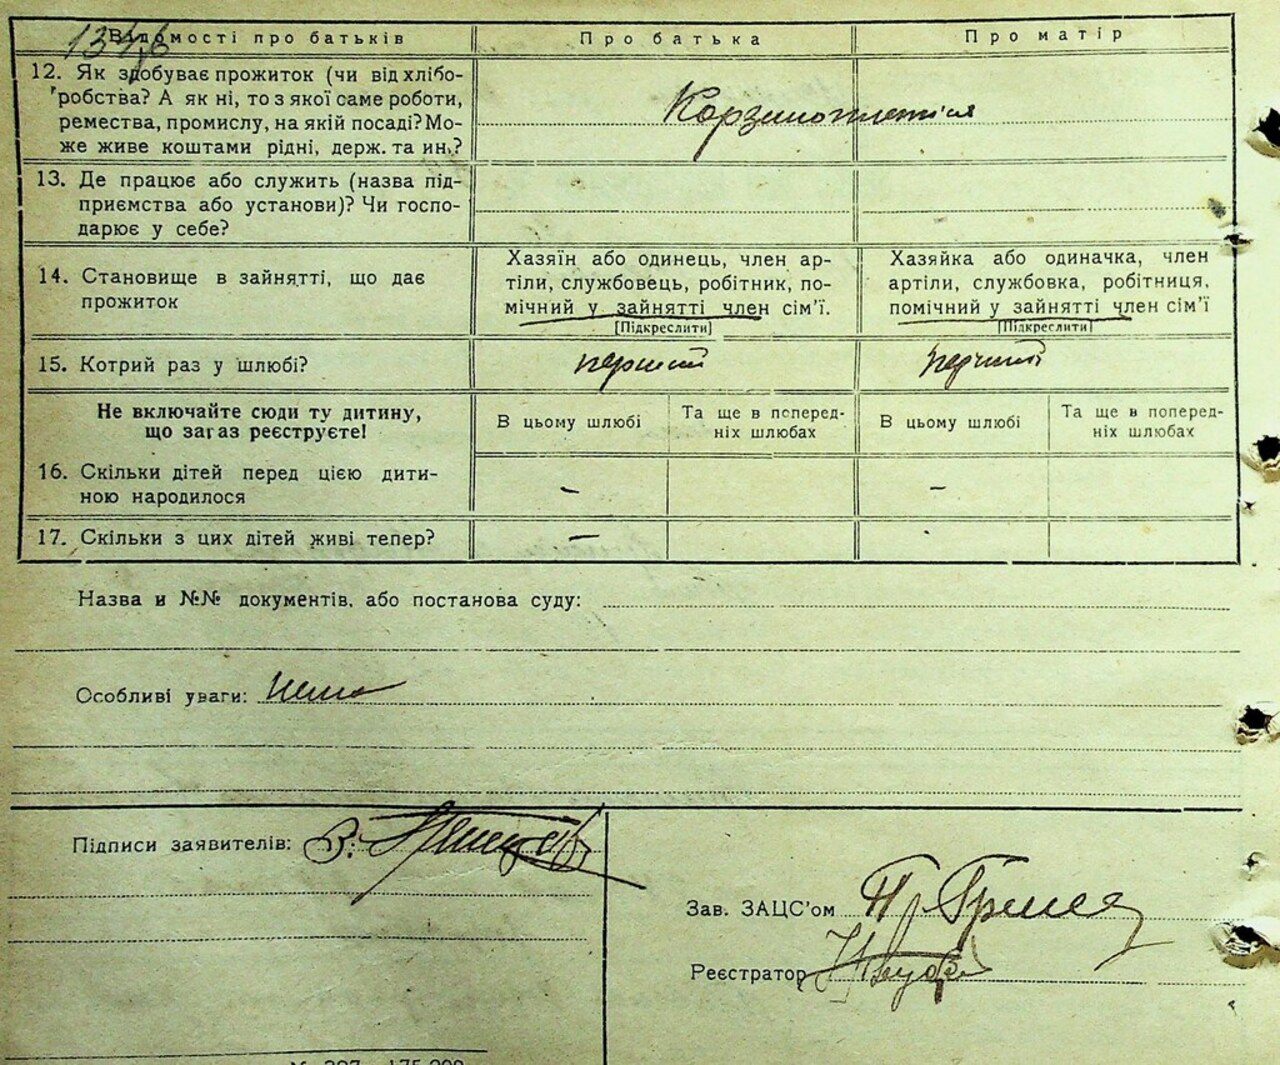 Відомості про батьків Про батька Про матір
12. Як здобуває прожиток (чи від хлібо-
робства? А як ні, то з якої саме роботи,
ремества, промислу, на якій посаді? Мо-
же живе коштами рідні, держ. та ин.?
13. Де працює або служить (назва під-
приємства або установи)? Чи госпо-
дарює у себе?
14. Становище в зайнятті, що дає
прожиток
Хазяїн або одинець, член ар-
тіли, службовець, робітник, по-
мічний у зайнятті член сім'ї.
[Підкреслити]
Хазяйка або одиначка, член
артіли, службовка, робітниця,
помічний у зайнятті член сім'ї
[Підкреслити]
15. Котрий раз у шлюбі? перший перший
Не включайте сюди ту дитину,
що зараз реєструєте!
В цьому шлюбі
Та ще в поперед-
ніх шлюбах
В цьому шлюбі
Та ще в поперед-
ніх шлюбах
16. Скільки дітей перед цією дити-
ною народилося
– –
17. Скільки з цих дітей живі тепер? –
Назва и №№ документів, або постанова суду:
Особливі уваги: нема
Підписи заявителів:
Зав. ЗАЦС'ом
Реєстратор